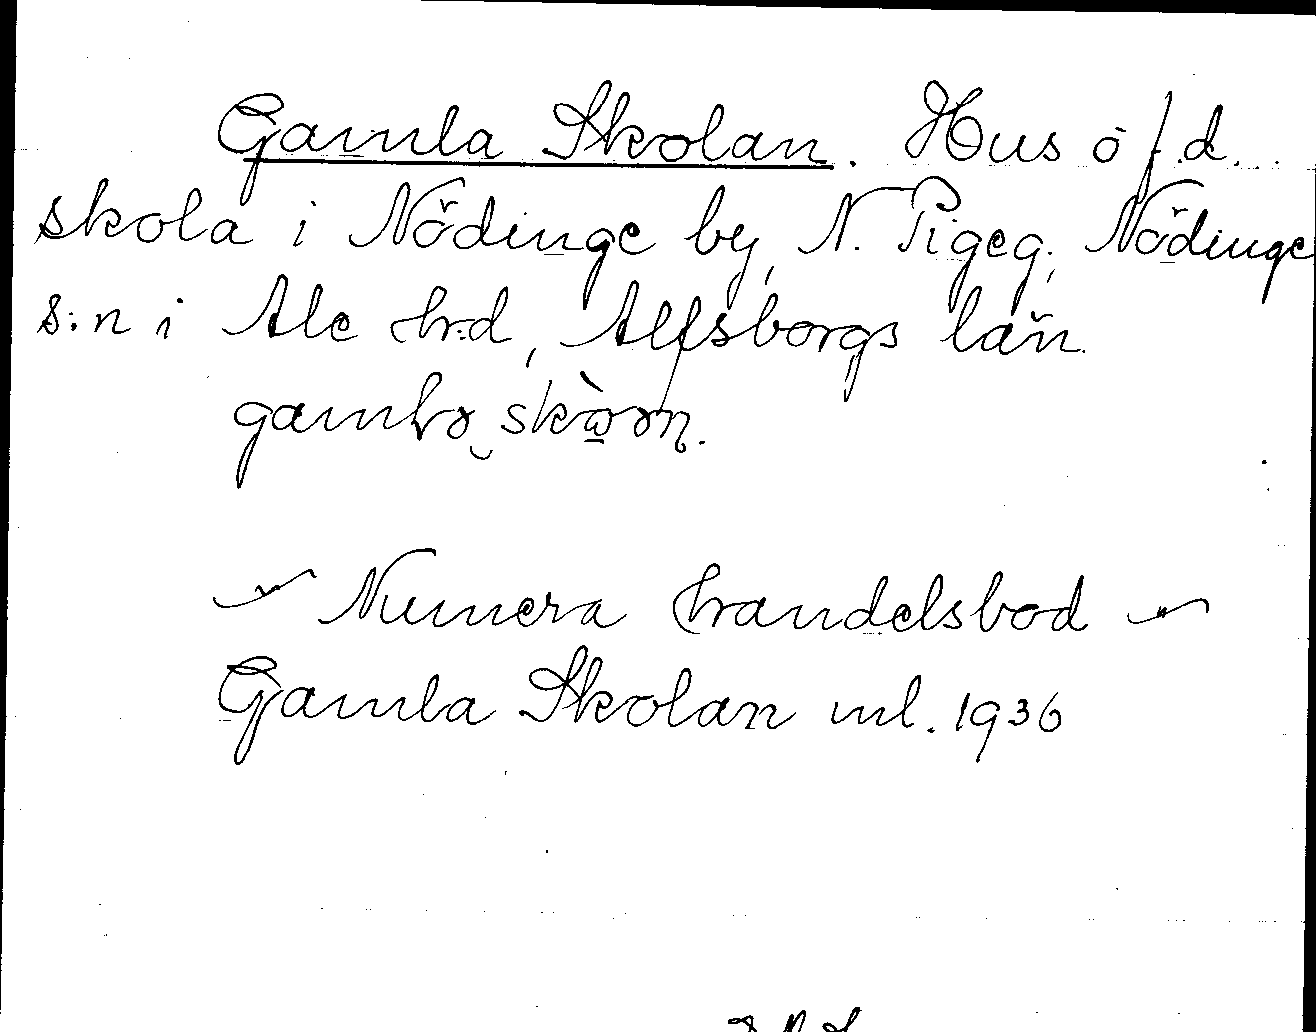 Gamla Skolan. Hus o f.d.
skola i Nödinge by, N. Pigeg., Nödinge
s:n i Ale h:d, Alfsborgs län.
Numera handelsbod
Gamla Skolan ml. 1936